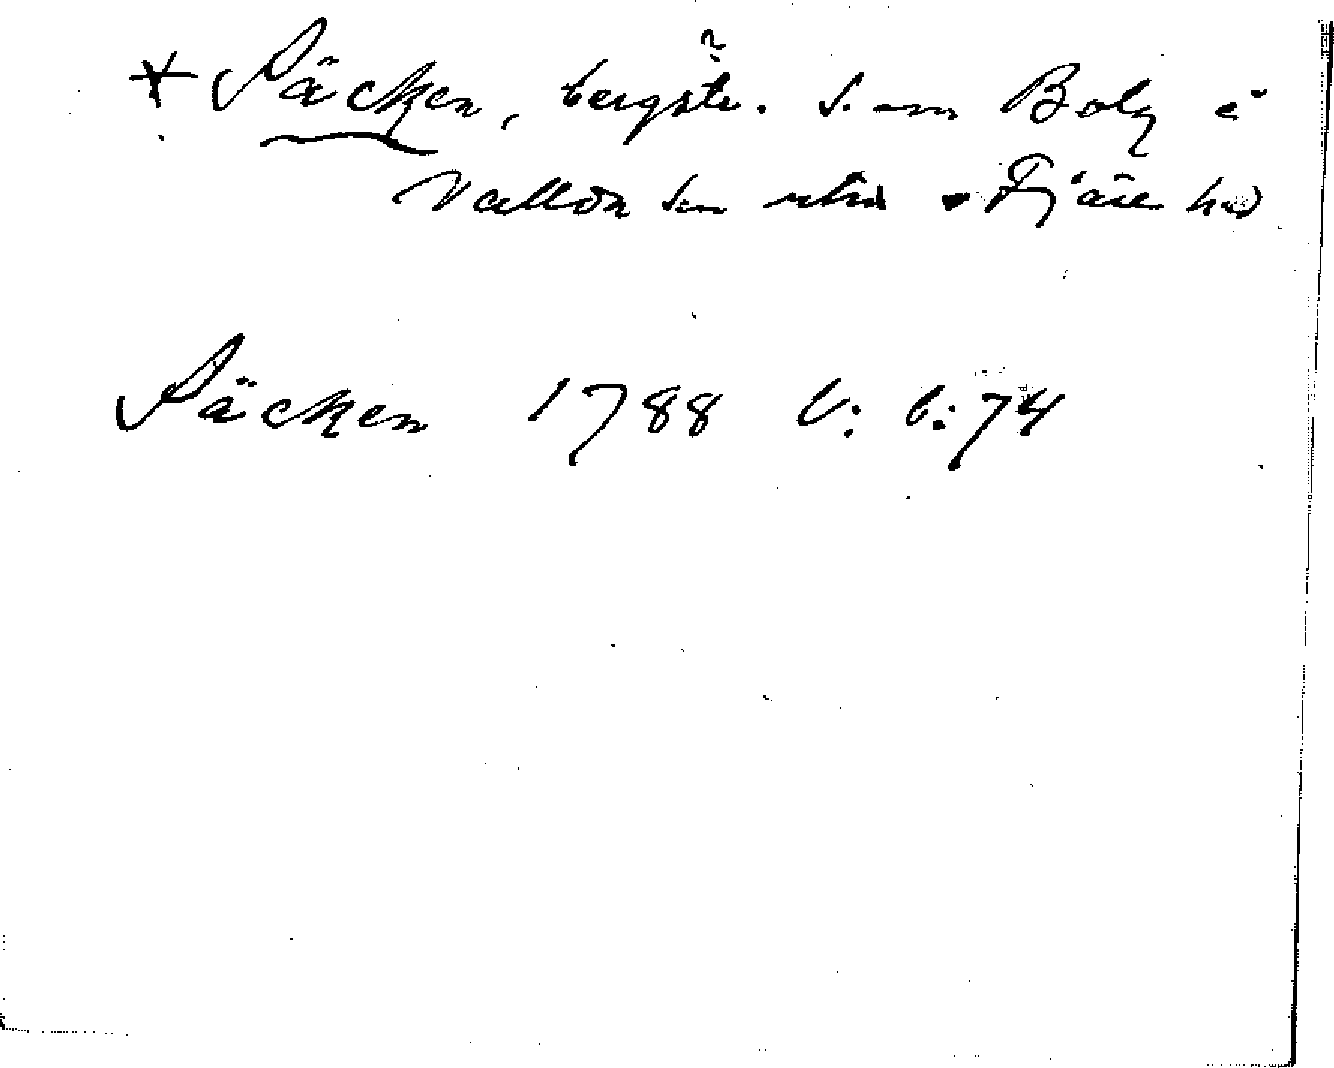 * Säcken, bergstr. S. om Boly i
Vallda sn Fjäre hd
Säcken 1788 6: 6:74